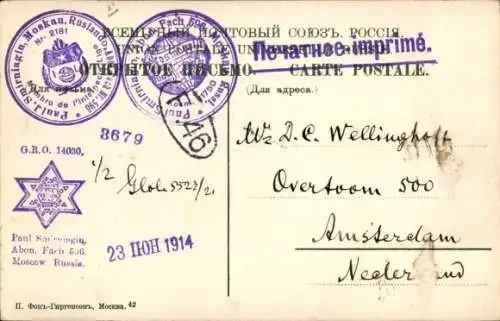 ВСЕМІРНЫЙ ПОЧТОВЫЙ СОЮЗЪ. РОССІЯ.
UNION POSTALE UNIVERSELLE. RUSSIE.
Печатное-Imprimé.
ОТКРЫТОЕ ПИСЬМО. — CARTE POSTALE.
Для письма.
(Для адреса.)
Paul J. Smirniagin, Moskau, Russland
Nr. 2181
Membro de
Fach 506
46
3679
G.R.O. 14030.
1/2 Glob. 5523/21
Paul Smirniagin,
Abon. Fach 506.
Moscow Russia.
23 ІЮН 1914
Mr D. C. Wellinghoff
Overtoom 500
Amsterdam
Nederland
П. Фонъ-Гиргенсонъ, Москва. 42